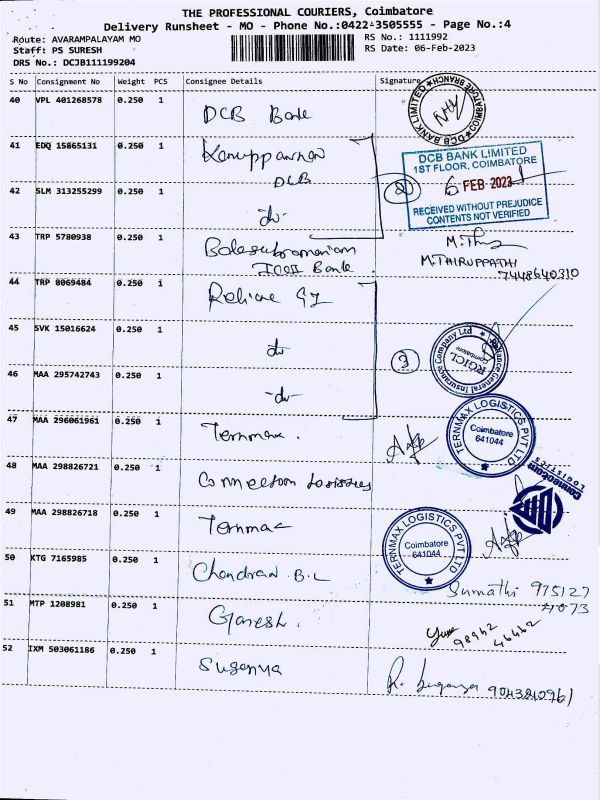 THE PROFESSIONAL COURIERS, Coimbatore
Delivery Runsheet - MO - Phone No.:0422-3505555 - Page No.:4
Route: AVARAMPALAYAM MO
RS No.: 1111992
Staff: PS SURESH
RS Date: 06-Feb-2023
DRS No.: DCJB111199204
S No Consignment No Weight PCS Consignee Details Signature
40 VPL 401268578 0.250 1 DCB Bank
DCB BANK LIMITED COIMBATORE BRANCH
41 EDQ 15065131 0.250 1
DCB
DCB BANK LIMITED
1ST FLOOR, COIMBATORE
6 FEB 2023
RECEIVED WITHOUT PREJUDICE
CONTENTS NOT VERIFIED
2
42 SLM 313255299 0.250 1 -do-
43 TRP 5780938 0.250 1 Balasubramaniam
ICICI Bank
M.THIRUPPATHI
7448640310
44 TRP 8069484 0.250 1 Reliance GI
45 SVK 15016624 0.250 1 do
Reliance General Insurance Company Ltd
RGICL
Coimbatore
46 MAA 295742743 0.250 1 -do-
47 MAA 296061961 0.250 1 Ternmax.
TERNMAX LOGISTICS PVT LTD
Coimbatore
641044
48 MAA 298826721 0.250 1
LOGISTICS
49 MAA 298826718 0.250 1 Ternmax
TERNMAX LOGISTICS PVT LTD
Coimbatore
641044
50 KTG 7165985 0.250 1 Chandran B.L
Sumathi 975127
4073
51 MTP 1208981 0.250 1 Ganesh.
98942
46462
52 IXM 503061186 0.250 1 Suganya
R. Suganya 9043210961